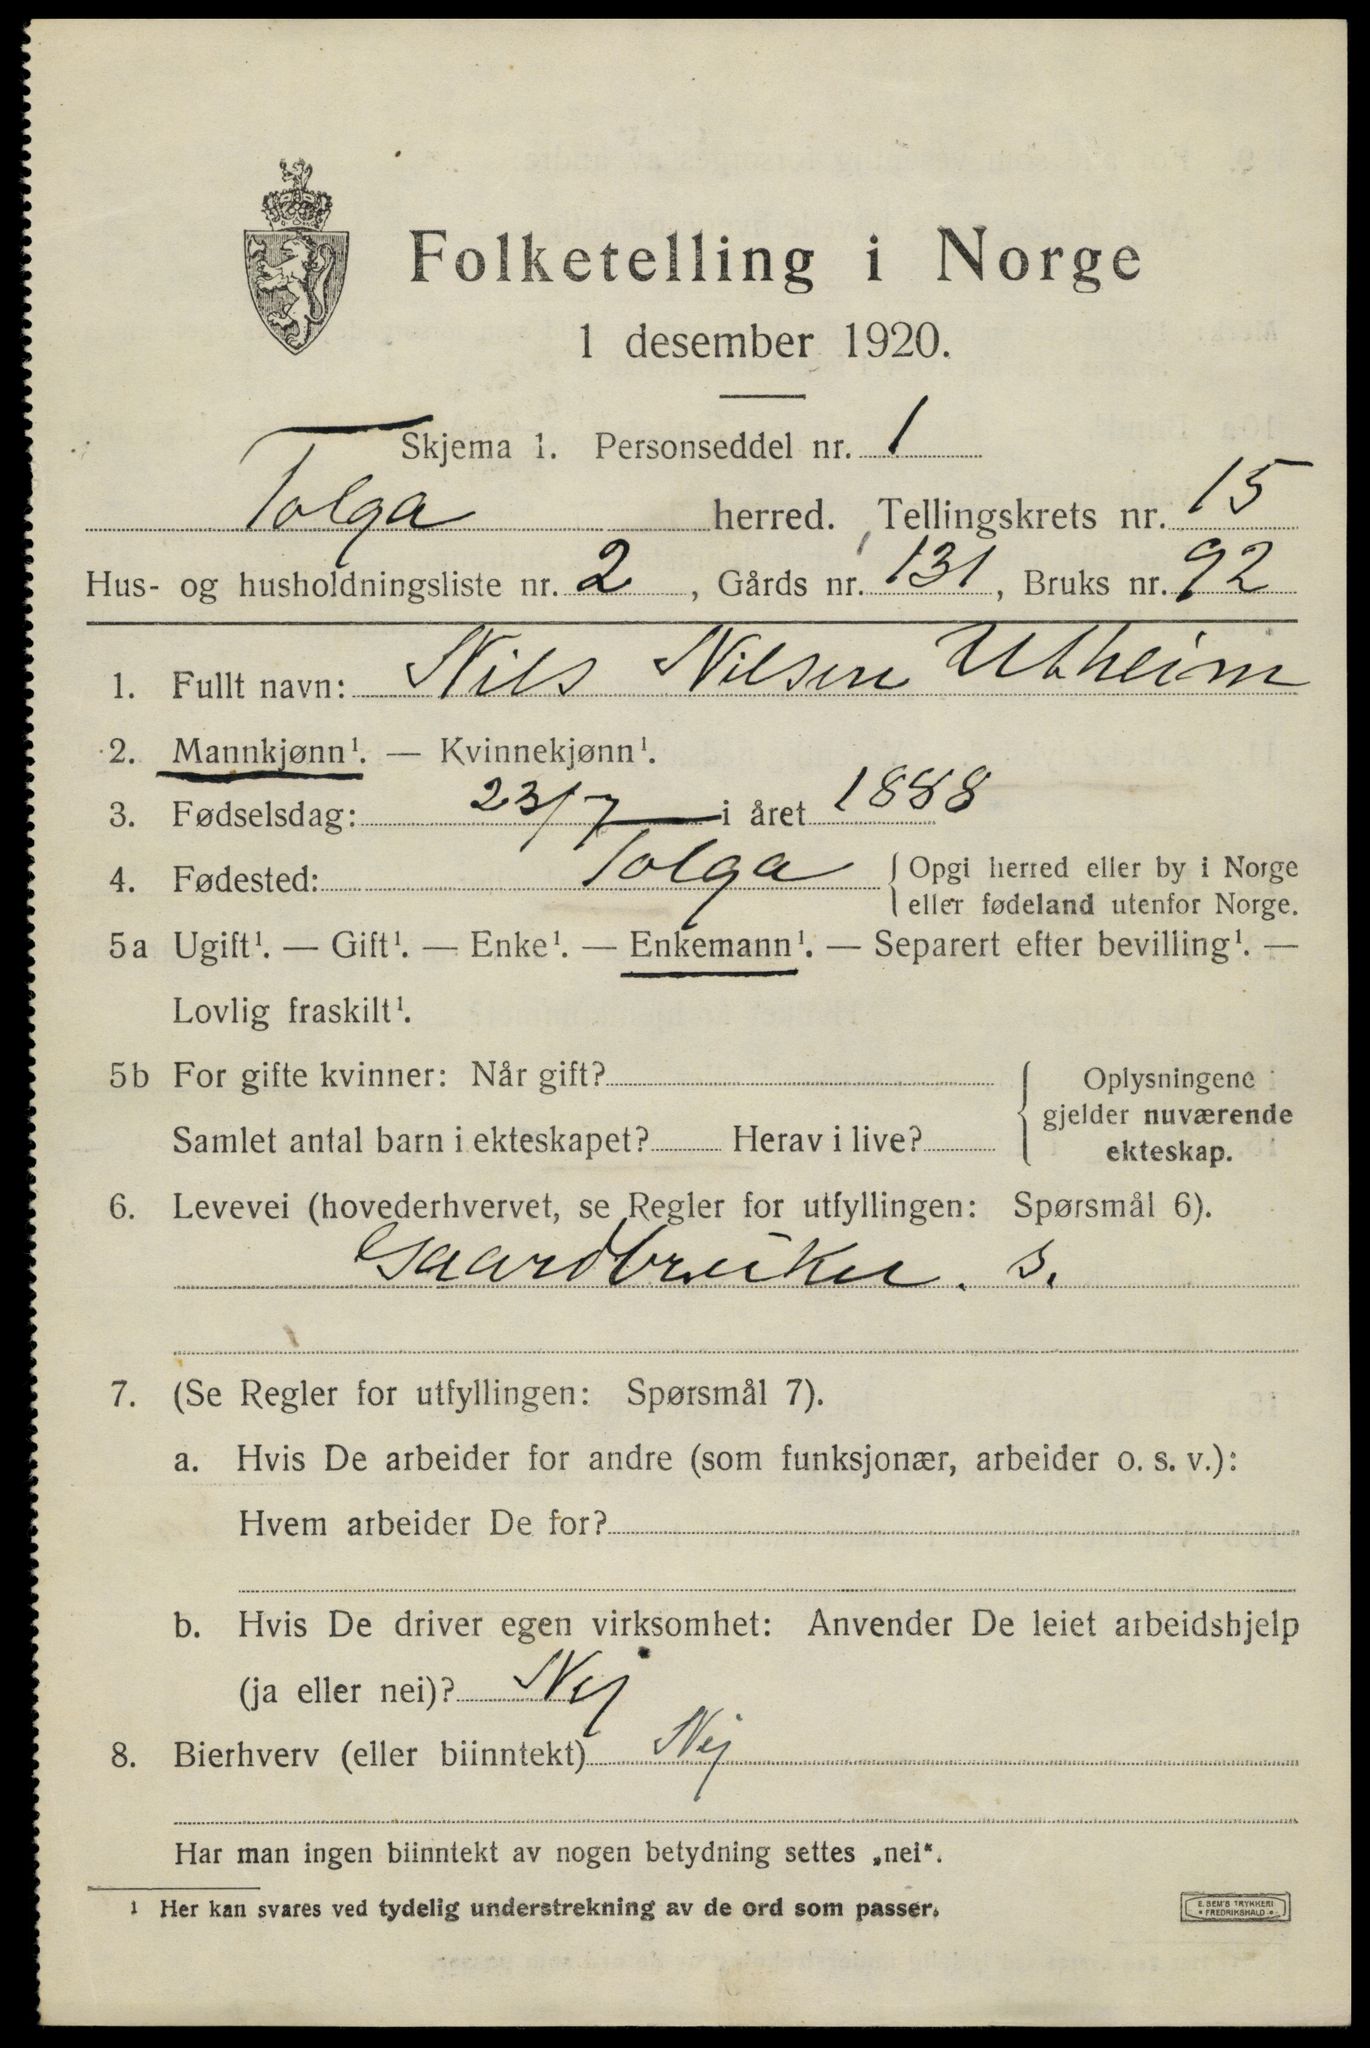 Folketelling i Norge
1 desember 1920.
Skjema 1. Personseddel nr. 1
Tolga herred. Tellingskrets nr. 15
Hus- og husholdningsliste nr. 2, Gårds nr. 131, Bruks nr. 92
1. Fullt navn: Nils Nilsen Utheim
2. Mannkjønn¹. — Kvinnekjønn¹.
3. Fødselsdag: 23/7 i året 1888
4. Fødested: Tolga { Opgi herred eller by i Norge
eller fødeland utenfor Norge.
5a Ugift¹. — Gift¹. — Enke¹. — Enkemann¹. — Separert efter bevilling¹. —
Lovlig fraskilt¹.
5b For gifte kvinner: Når gift?
Samlet antal barn i ekteskapet? Herav i live?
{ Oplysningene
gjelder nuværende
ekteskap.
6. Levevei (hovederhvervet, se Regler for utfyllingen: Spørsmål 6).
Gaardbruker. s.
7. (Se Regler for utfyllingen: Spørsmål 7).
a. Hvis De arbeider for andre (som funksjonær, arbeider o. s. v.):
Hvem arbeider De for?
b. Hvis De driver egen virksomhet: Anvender De leiet arbeidshjelp
(ja eller nei)? Nej
8. Bierhverv (eller biinntekt) Nej
Har man ingen biinntekt av nogen betydning settes „nei“.
¹ Her kan svares ved tydelig understrekning av de ord som passer.
E. SEM'S TRYKKERI
FREDRIKSHALD